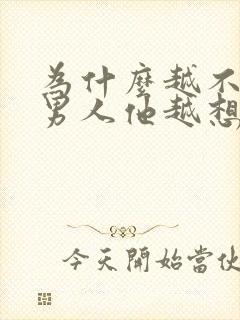 為什麼越不
男人他越想
今天開始當伙